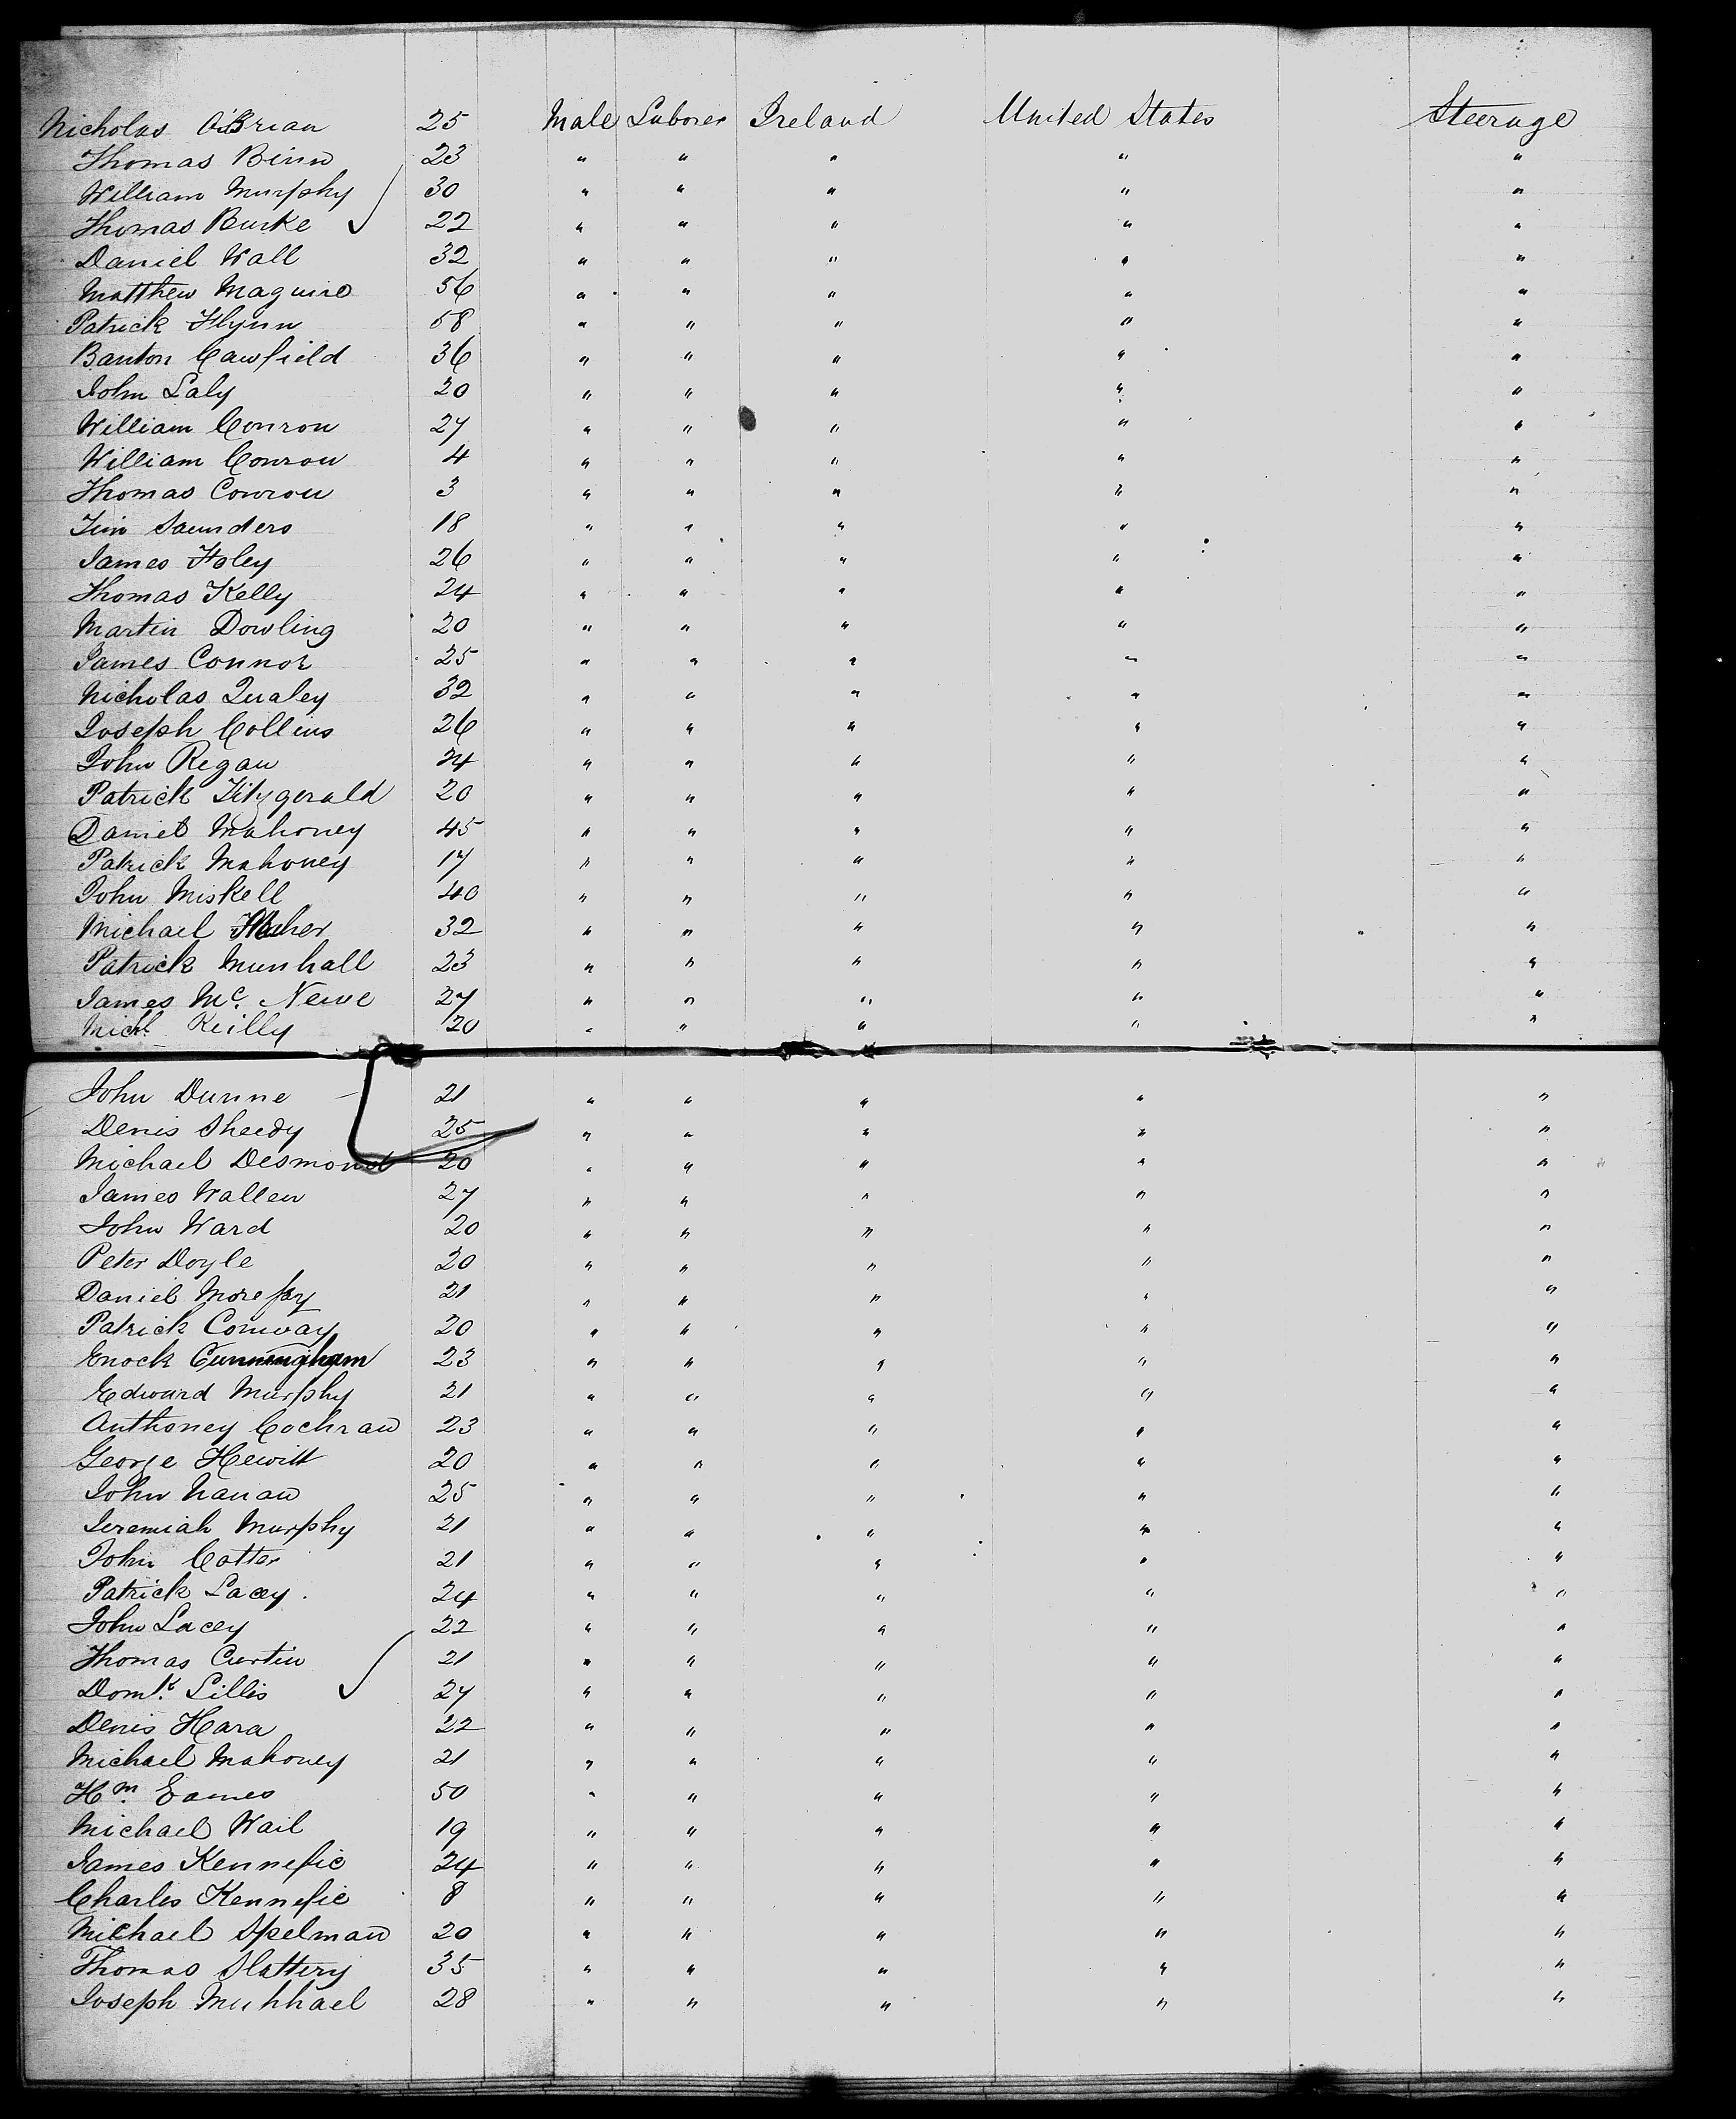 Nicholas O'Brian 25 Male Laborer Ireland United States Steerage
Thomas Binn 23 " " " " "
William Murphy 30 " " " " "
Thomas Burke 22 " " " " "
Daniel Wall 32 " " " " "
Matthew Maguire 56 " " " " "
Patrick Flynn 58 " " " " "
Banton Cawfield 36 " " " " "
John Laly 20 " " " " "
William Conron 27 " " " " "
William Conron 4 " " " " "
Thomas Conron 3 " " " " "
Tim Saunders 18 " " " " "
James Foley 26 " " " " "
Thomas Kelly 24 " " " " "
Martin Dowling 20 " " " " "
James Connor 25 " " " " "
Nicholas Qualey 32 " " " " "
Joseph Collins 26 " " " " "
John Regan 24 " " " " "
Patrick Fitzgerald 20 " " " " "
Daniel Mahoney 45 " " " " "
Patrick Mahoney 17 " " " " "
John Miskell 40 " " " " "
Michael 32 " " " " "
Patrick Munhall 23 " " " " "
James Mc. Neive 27 " " " " "
Michl. Reilly 20 " " " " "
John Dunne 21 " " " " "
Denis Sheedy 25 " " " " "
Michael Desmond 20 " " " " "
James Wallen 27 " " " " "
John Ward 20 " " " " "
Peter Doyle 20 " " " " "
Daniel 21 " " " " "
Patrick Conway 20 " " " " "
Enock Cunningham 23 " " " " "
Edward Murphy 21 " " " " "
Anthoney Cochran 23 " " " " "
George Hewitt 20 " " " " "
John Nanan 25 " " " " "
Jeremiah Murphy 21 " " " " "
John Cotter 21 " " " " "
Patrick Lacey. 24 " " " " "
John Lacey 22 " " " " "
Thomas Curtin 21 " " " " "
Domk. Lillis 27 " " " " "
Denis Hara 22 " " " " "
Michael Mahoney 21 " " " " "
Hm. Eames 50 " " " " "
Michael Wail 19 " " " " "
James Kennefic 24 " " " " "
Charles Kennefic 8 " " " " "
Michael Spelman 20 " " " " "
Thomas Slattery 35 " " " " "
Joseph Muhhael 28 " " " " "